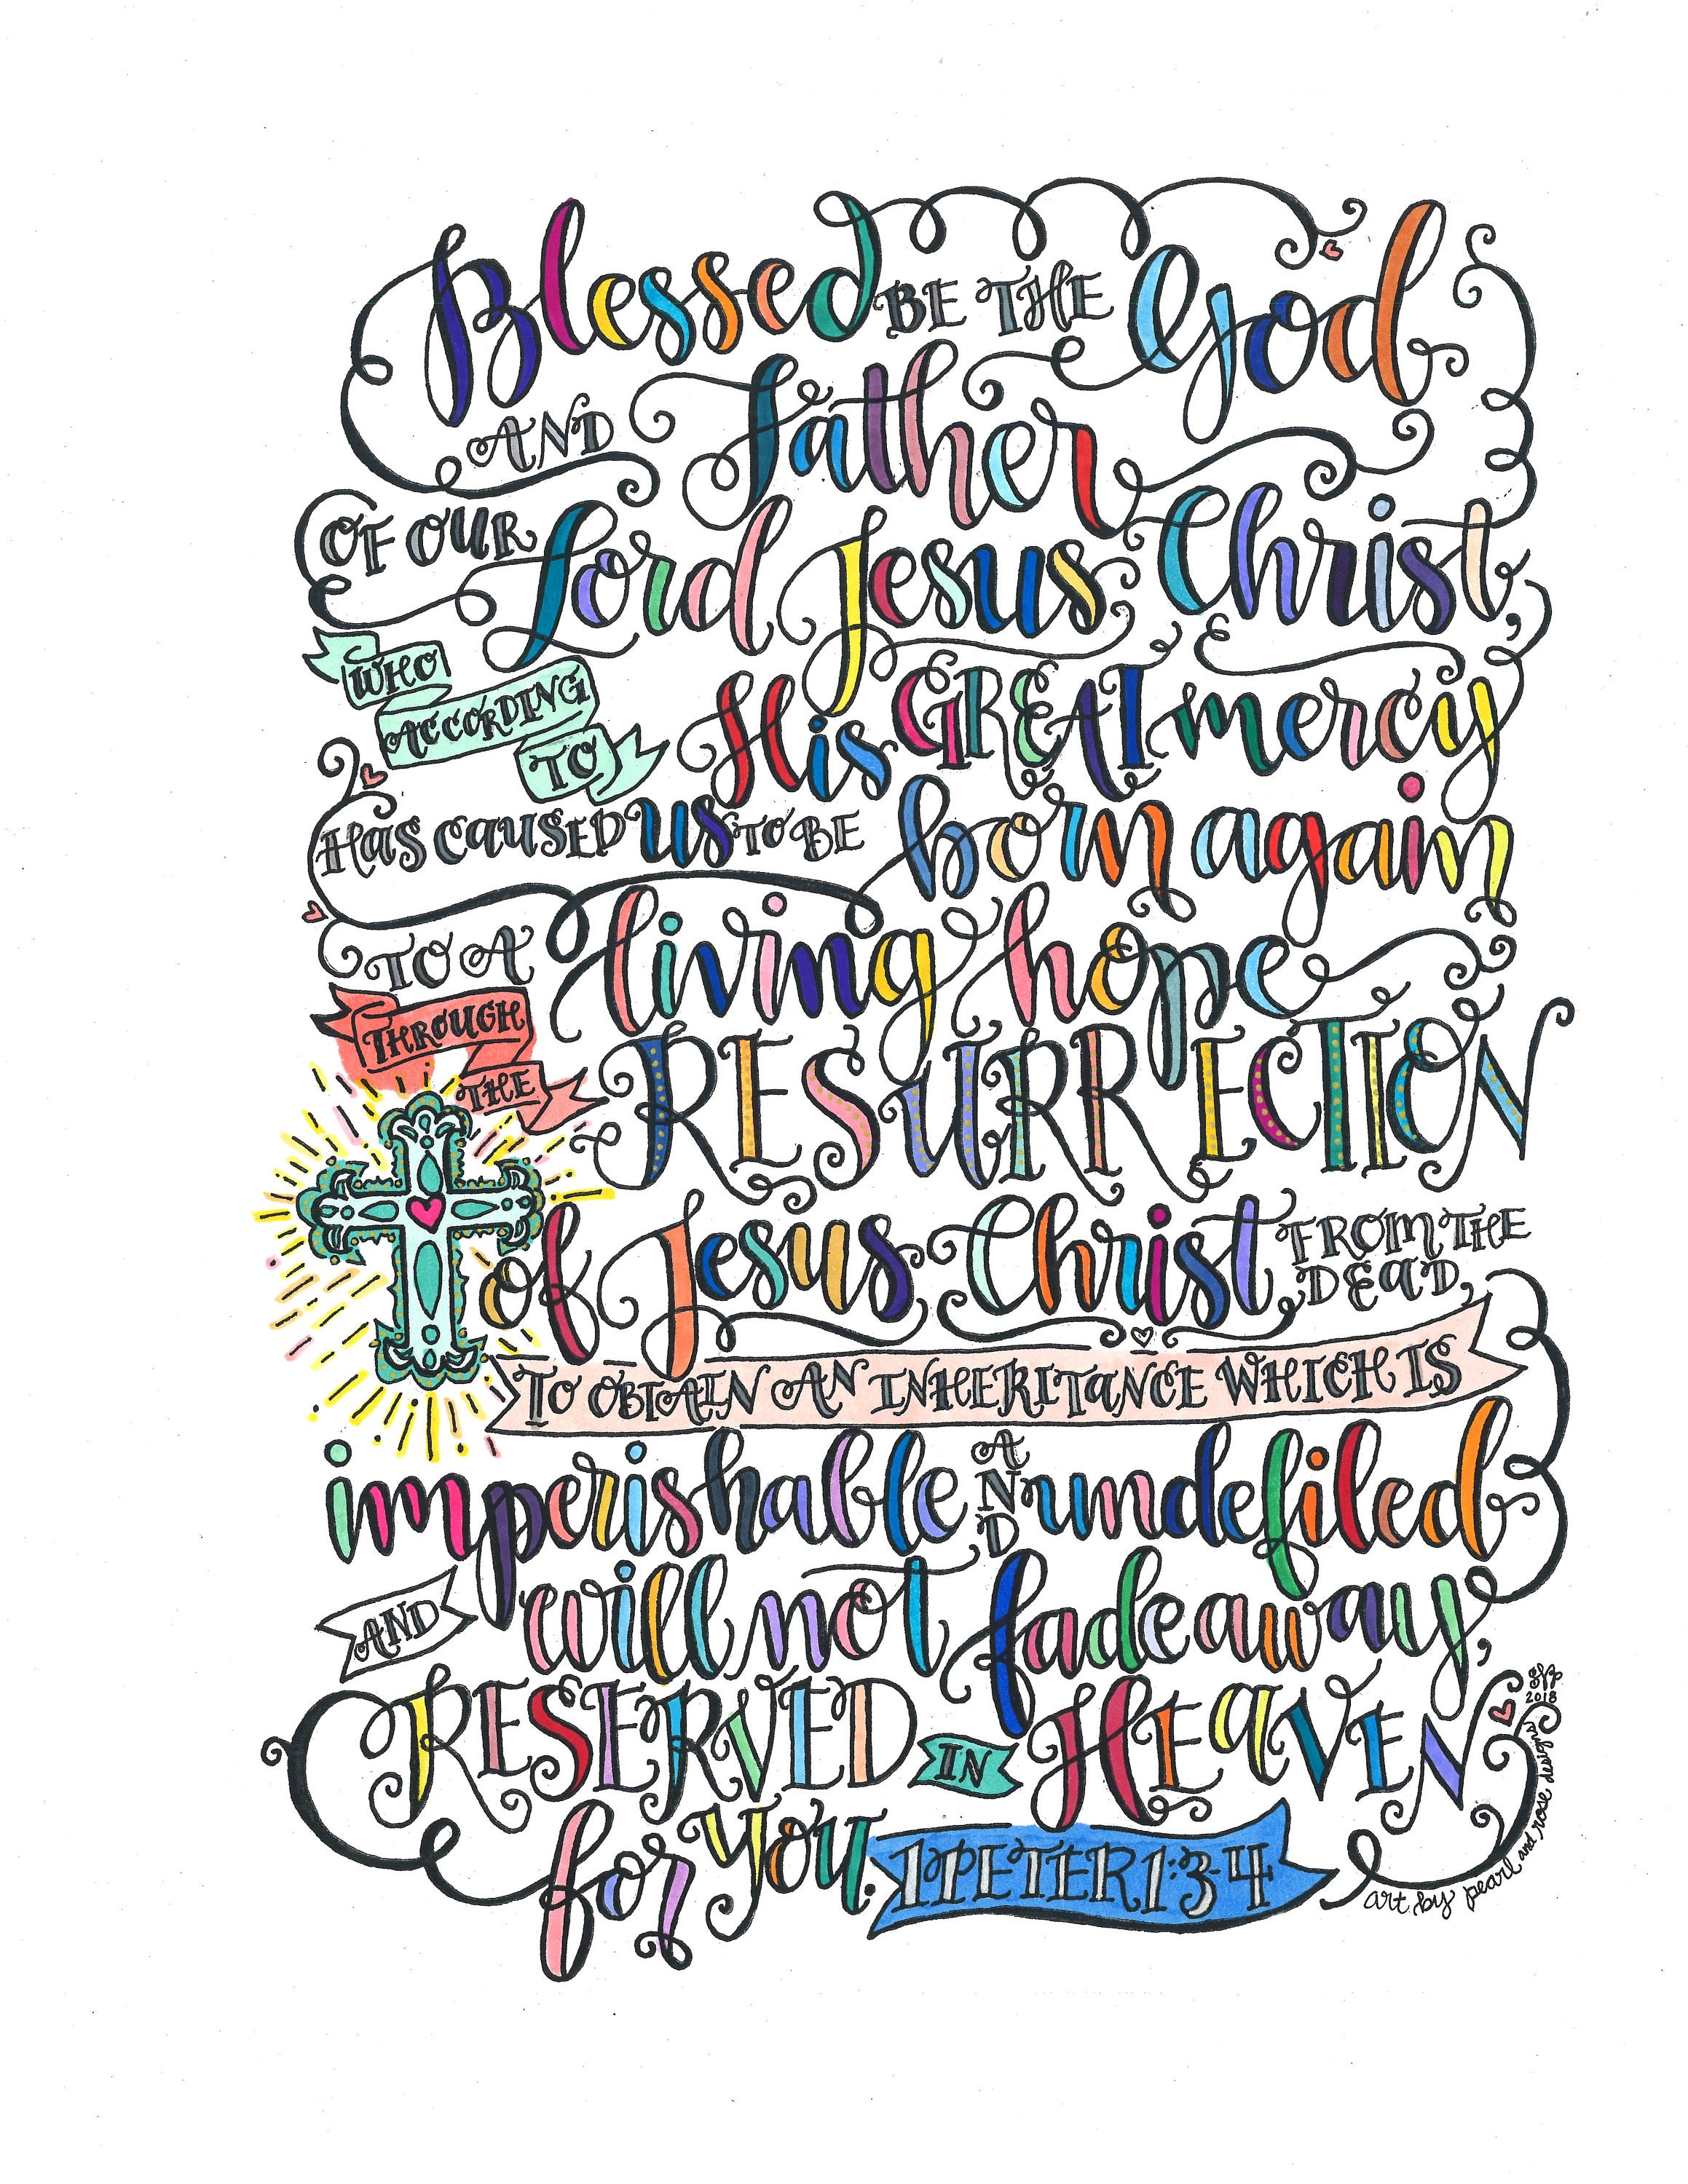 Blessed BE THE God
AND Father
OF OUR Lord Jesus Christ,
WHO
ACCORDING
TO
His GREAT mercy
HAS CAUSED US TO BE born again
TO A living hope
THROUGH
THE
RESURRECTION
of Jesus Christ FROM THE
DEAD,
TO OBTAIN AN INHERITANCE WHICH IS
imperishable AND undefiled
AND will not fade away,
RESERVED IN HEAVEN
for YOU.
1 PETER 1:3-4
2018
art by pearl and rose designs